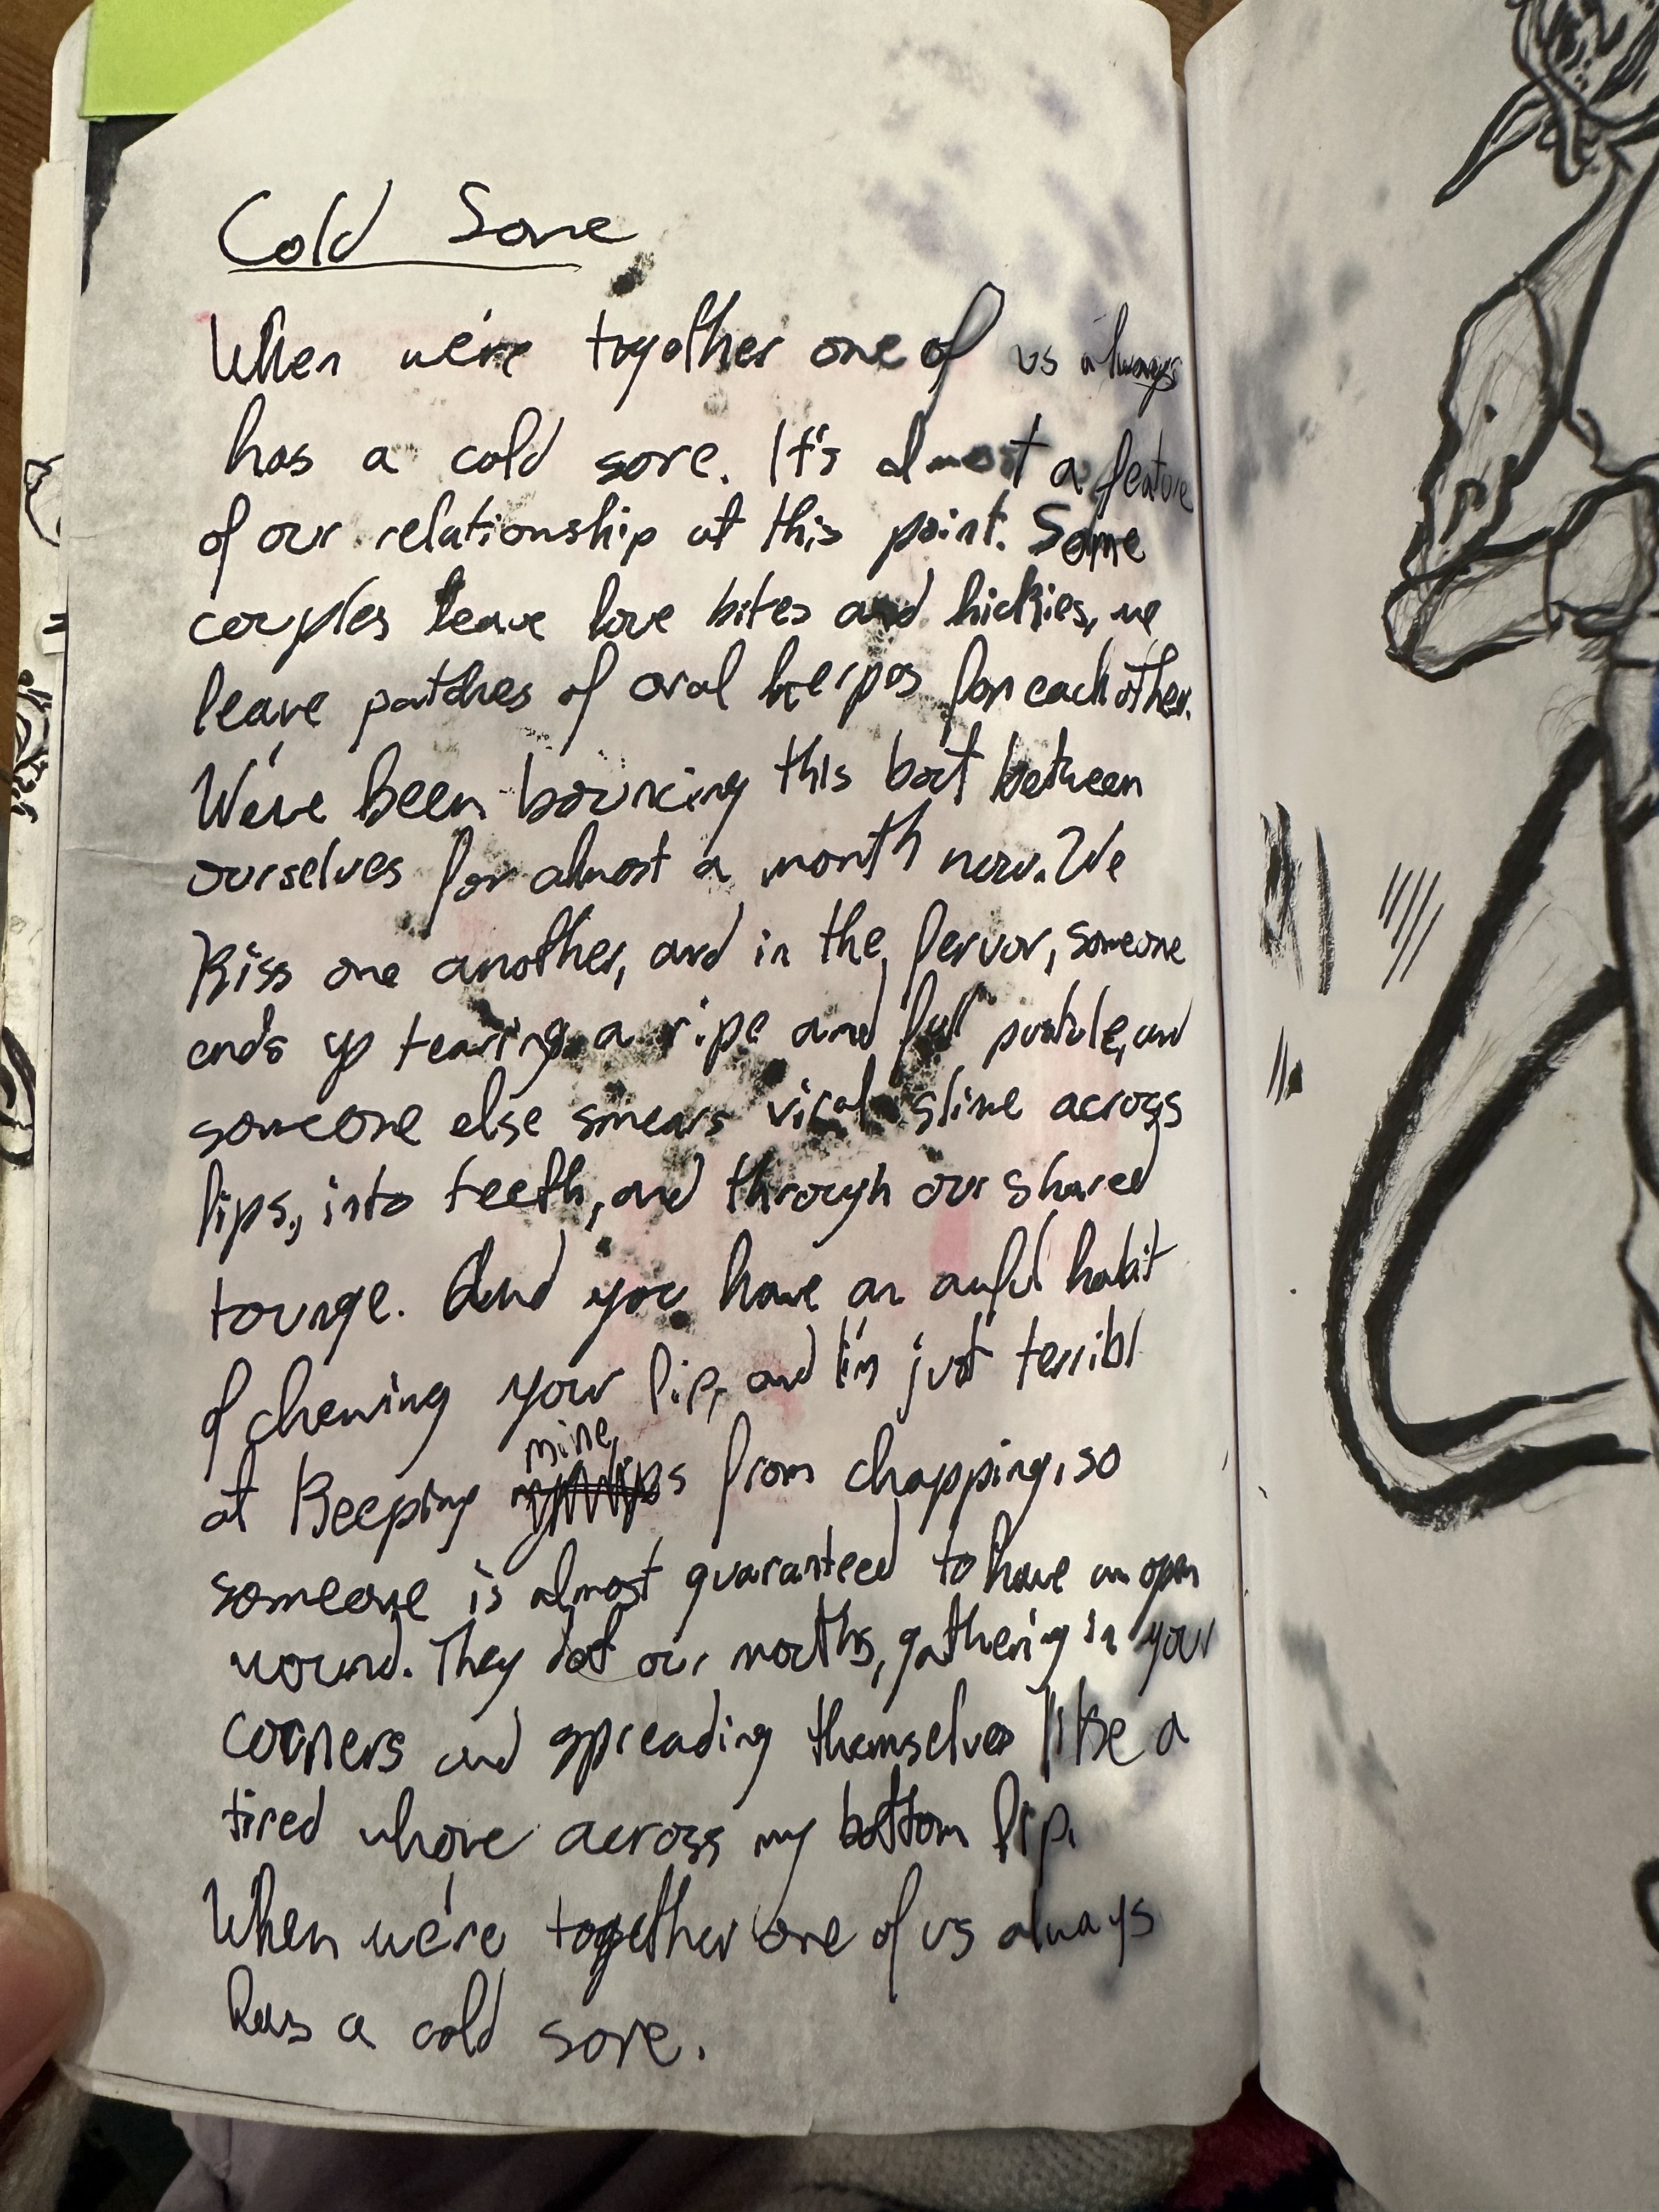 Cold Sore
When we're together one of us always
has a cold sore. It's almost a feature
of our relationship at this point. Some
couples leave love bites and hickies, we
leave patches of oral herpes for each other.
We've been bouncing this bout between
ourselves for almost a month now. We
Kiss one another, and in the fervor, someone
ends up tearing a ripe and full pustule, and
someone else smears viral slime across
lips, into teeth, and through our shared
tounge. And you have an awful habit
of chewing your lip, and I'm just terribl
mine,
at Keeping from chapping, so
someone is almost guaranteed to have an open
wound. They dot our mouths, gathering in your
corners and spreading themselves like a
tired whore across my bottom lip.
When we're together one of us always
has a cold sore.